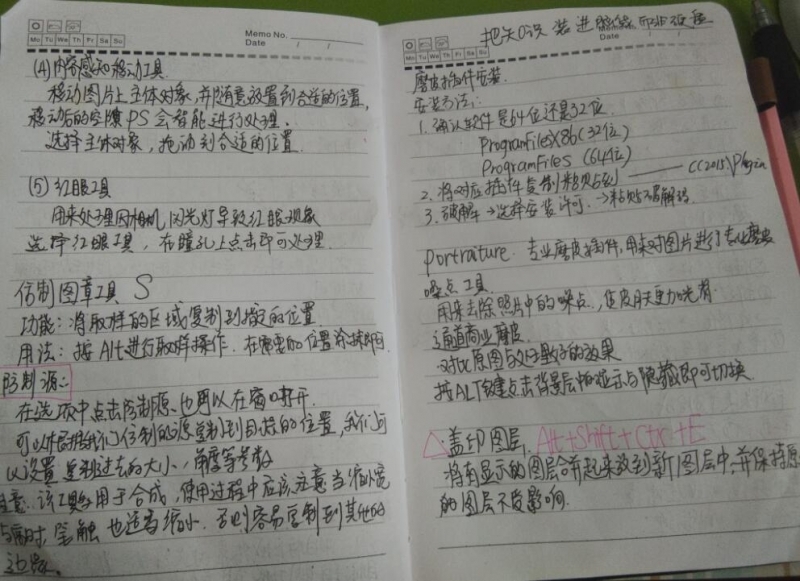 Memo No.
Mo Tu We Th Fr Sa Su
Date / /
(4)内容感知移动工具
移动图片上主体对象,并随意放置到合适的位置,
移动后的空隙PS会智能进行处理。
选择主体对象,拖动到合适的位置
(5)红眼工具
用来处理因相机闪光灯导致红眼现象
选择红眼工具,在瞳孔上点击即可处理.
仿制图章工具 S
功能:将取样的区域复制到指定的位置
用法:按Alt进行取样操作.在需要的位置涂抹即可
仿制源:
在选项中点击仿制源、也可以在窗口打开.
可以根据我们仿制的源复制到目标的位置,我们可
以设置复制过去的大小,角度等参数
注意:该工具多用于合成,使用过程中应该注意当
时,笔触也适当缩小.否则容易复制到其他的
边缘。
把 装进
Mo Tu We Th Fr Sa Su
Date / /
磨皮插件安装.
安装方法:
1.确认软件是64位还是32位.
ProgramFiles)X86(32位)
ProgramFiles (64位)
2.将对应插件复制粘贴到 —— CC(2015)\Plugin
3.破解→选择安装许可.→粘贴 解码
portraiture.专业磨皮插件,用来对图片进行专业磨皮
噪点工具.
用来去除照片中的噪点.,使皮肤更加光滑
通道商业磨皮.
对比原图与处理好的效果
按ALT键点击背景层的显示与隐藏即可切换
△:盖印图层. Alt+Shift+Ctr+E
将有显示的图层合并起来放到新图层中,并保持原
的图层不受影响.